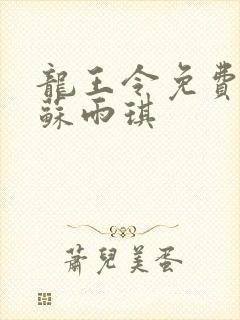 龍王令免費
蘇雨琪
蕭兒美蛋